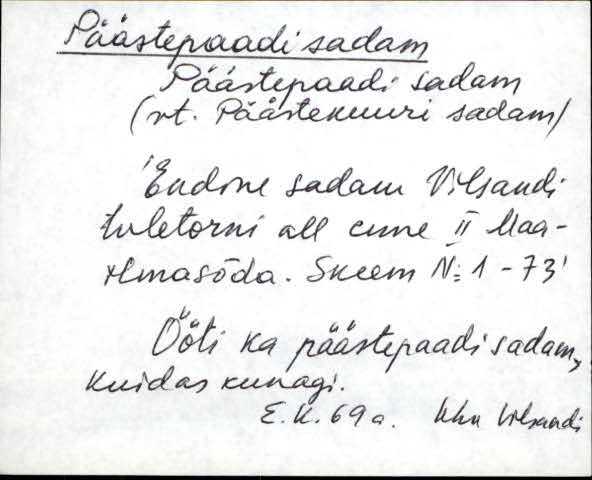 Päästepaadi sadam
Päästepaadi sadam
(vt. Päästekuuri sadam)
'Endine sadam Vilsandi
tuletorni all enne II Maa-
ilmasõda. Skeem № 1 - 73'
Ööti ka päästepaadi sadam,
kuidas kunagi.
E.K. 69 a. Khk Vilsandi